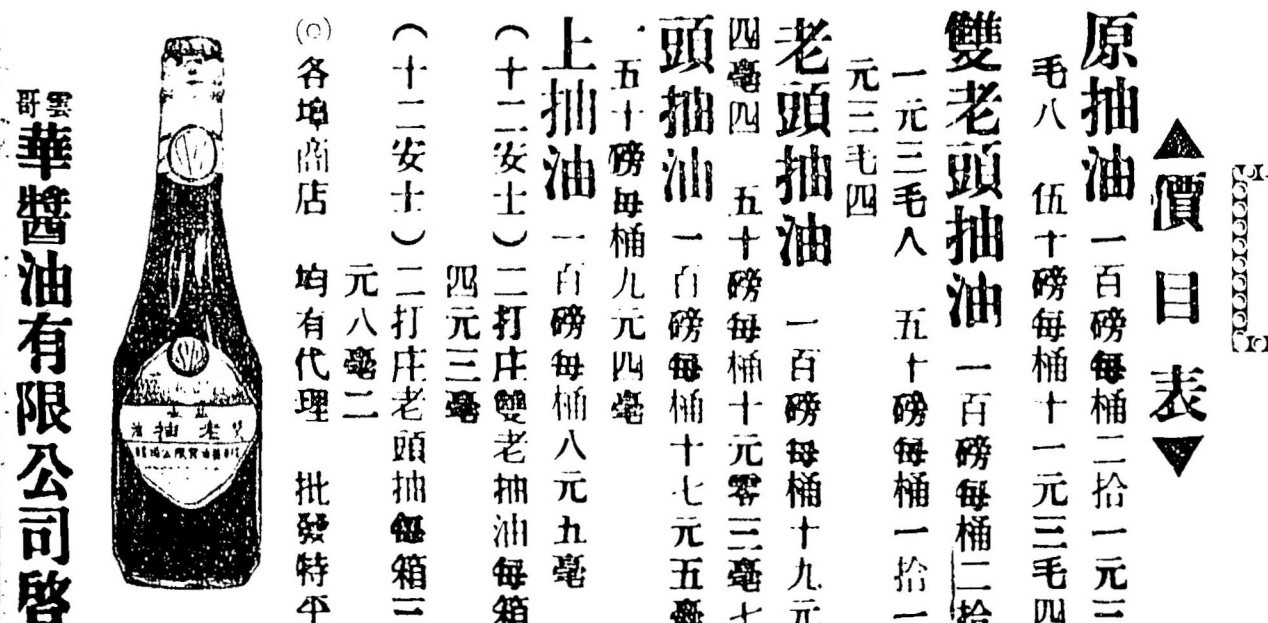 ▲價目表▼
原抽油 一百磅每桶二拾一元三
毛八 伍十磅每桶十一元三毛四
雙老頭抽油 一百磅每桶二拾
一元三毛八 五十磅每桶一拾一
元三毛四
老頭抽油 一百磅每桶十九元
四毫四 五十磅每桶十元零三毫七
頭抽油 一百磅每桶十七元五毫
一 五十磅每桶九元四毫
上抽油 一百磅每桶八元五毫
(十二安士)二打庄雙老抽油每箱
四元三毫
(十二安士)二打庄老頭抽每箱三
元八毫二
◎各埠商店 均有代理 批發特平
雲哥華醬油有限公司啓